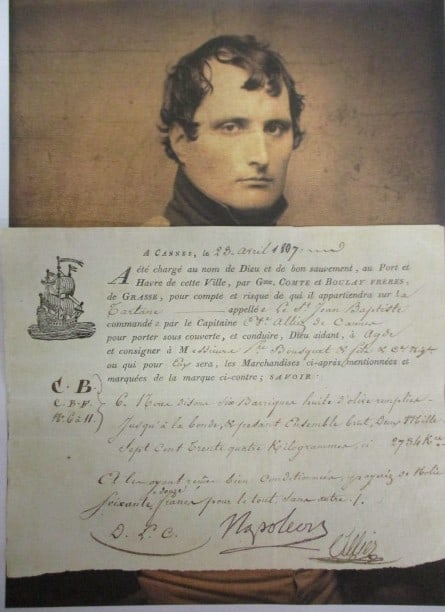 A CANNES, le 23 Avril 1807
A été chargé au nom de Dieu et de bon sauvement, au Port et
Havre de cette Ville, par Gme. COMTE et BOULAY FRÈRES,
de GRASSE, pour compte et risque de qui il appartiendra sur la
Tartane appellée Le St. Jean Baptiste
commandée par le Capitaine Allièz de Cannes
pour porter sous couverte, et conduire, Dieu aidant, à Agde
et consigner à Messieurs Bousquet & fils &
ou qui pour Luy sera, les Marchandises ci-après mentionnées et
marquées de la marque ci-contre; SAVOIR:
C. B.
C. B. F.
6. Six Barriques huile d'olive remplies
Jusqu'à la bonde, & pesant Ensemble brut, Deux Mille
Sept Cent Trente quatre Kilogrammes, ci 2734 K
Et les ayant reçues bien Conditionnées, payez de
Soixante douze francs pour le tout sans autre
Napoleon